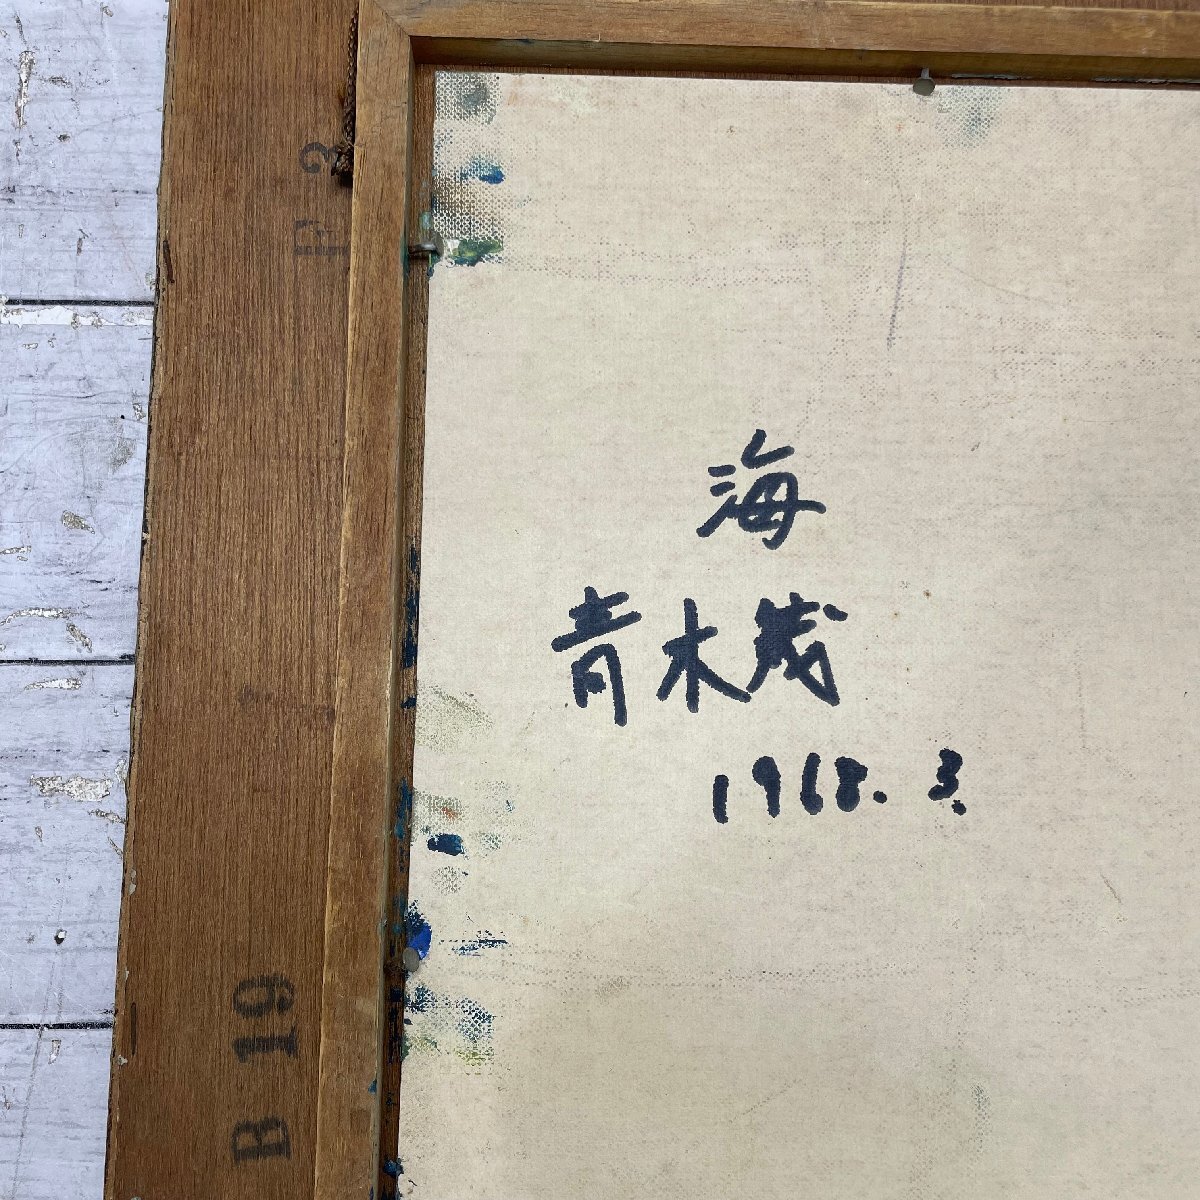 F 3
海
青木茂
1968. 3.
B 19